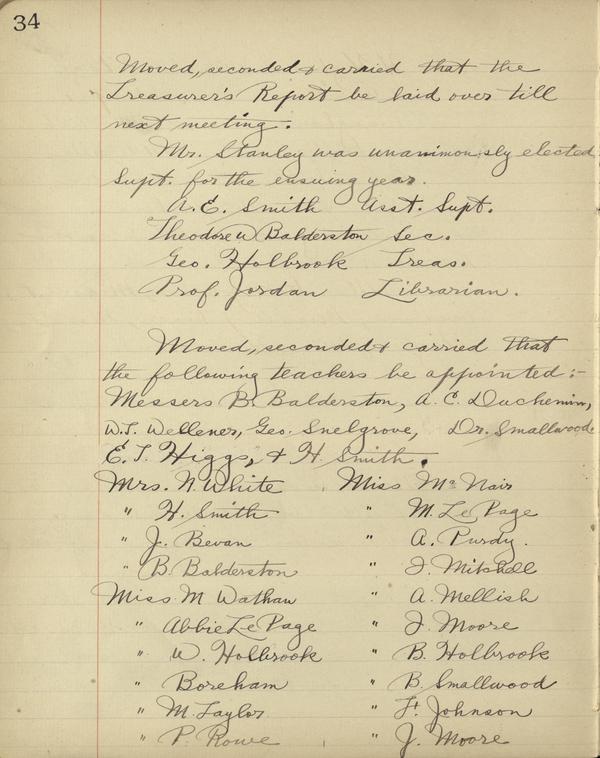 34
Moved, seconded & carried that the
Treasurer's Report be laid over till
next meeting.
Mr. Stanley was unanimously elected
Supt. for the ensuing year.
A. E. Smith Asst. Supt.
Theodore W Balderston Sec.
Geo. Holbrook Treas.
Prof. Jordan Librarian.
Moved, seconded & carried that
the following teachers be appointed :-
Messers B. Balderston, A. C. Duchemin,
W. T. Wellener, Geo. Snelgrove, Dr. Smallwood
E. T. Higgs, & H Smith.
Mrs. N. White Miss McNair
" H. Smith " M. Le Page
" J. Bevan " A. Purdy.
" B. Balderston " J. Mitchell
Miss M Wathan " A. Mellish
" Abbie Le Page " J. Moore
" W. Holbrook " B. Holbrook
" Boreham " B. Smallwood
" M. Taylor " Johnson
" P. Rowe " J. Moore